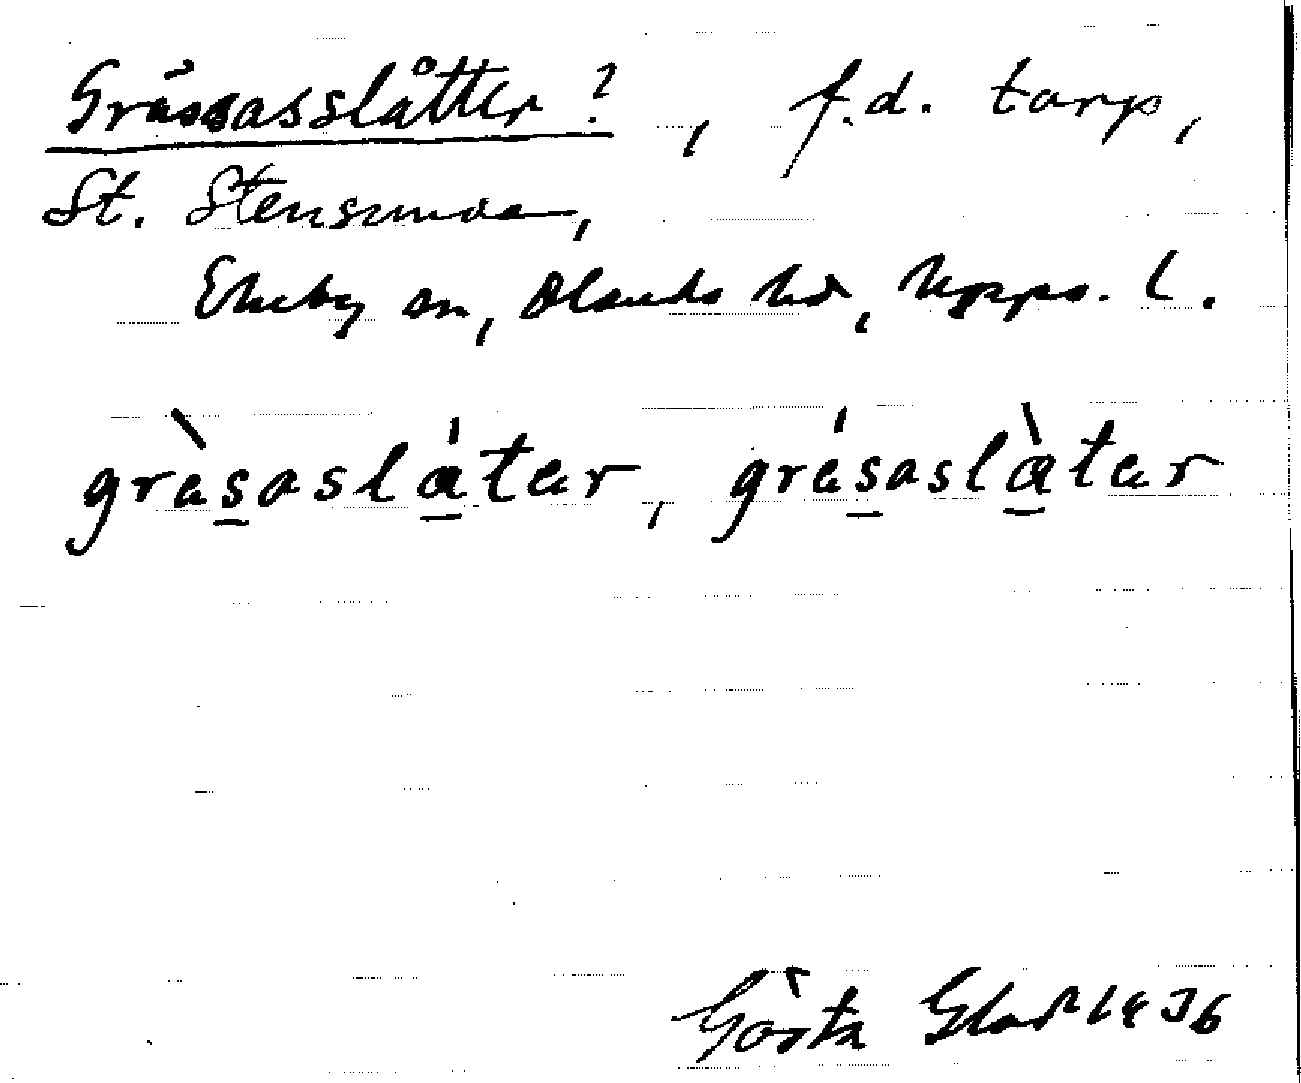 Gråsasslåtter?, f.d. torp,
St. Stensunda,
Ekeby sn, Olands hd, Upps. l.
gràsaslátar, grásaslàtar
Gösta Glad 1936